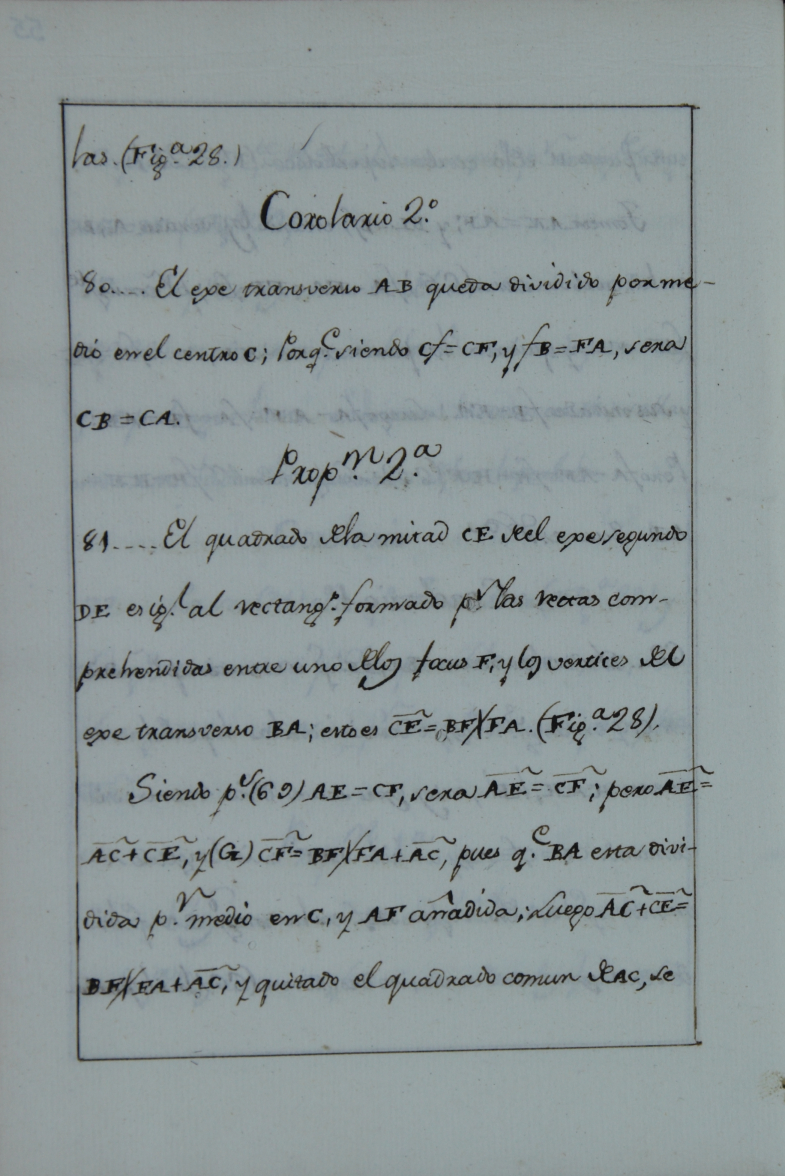 las. (Fig.ª 28.)
Corolario 2.º
80.... El exe transverso AB queda dividido por me-
dio en el centro C; Porq.e siendo Cf=CF, y fB=FA, sera
CB=CA.
Prop.n 2.ª
81.... El quadrado dela mitad CE del exe segundo
DE es ig.l al rectang.o formado p.r las rectas com-
prehendidas entre uno delos focus F, y los vertices del
exe transverso BA; esto es C̅E̅²=BF)(FA. (Fig.ª 28).
Siendo p.r (69) AE=CF, sera A̅E̅²=C̅F̅²; pero A̅E̅²=
A̅C̅²+C̅E̅², y (G) C̅F̅²=BF)(FA+A̅C̅², pues q.e BA esta divi-
dida p.r medio en C, y AF añadida; Luego A̅C̅²+C̅E̅²=
BF)(FA+A̅C̅², y quitado el quadrado comun deAC, se